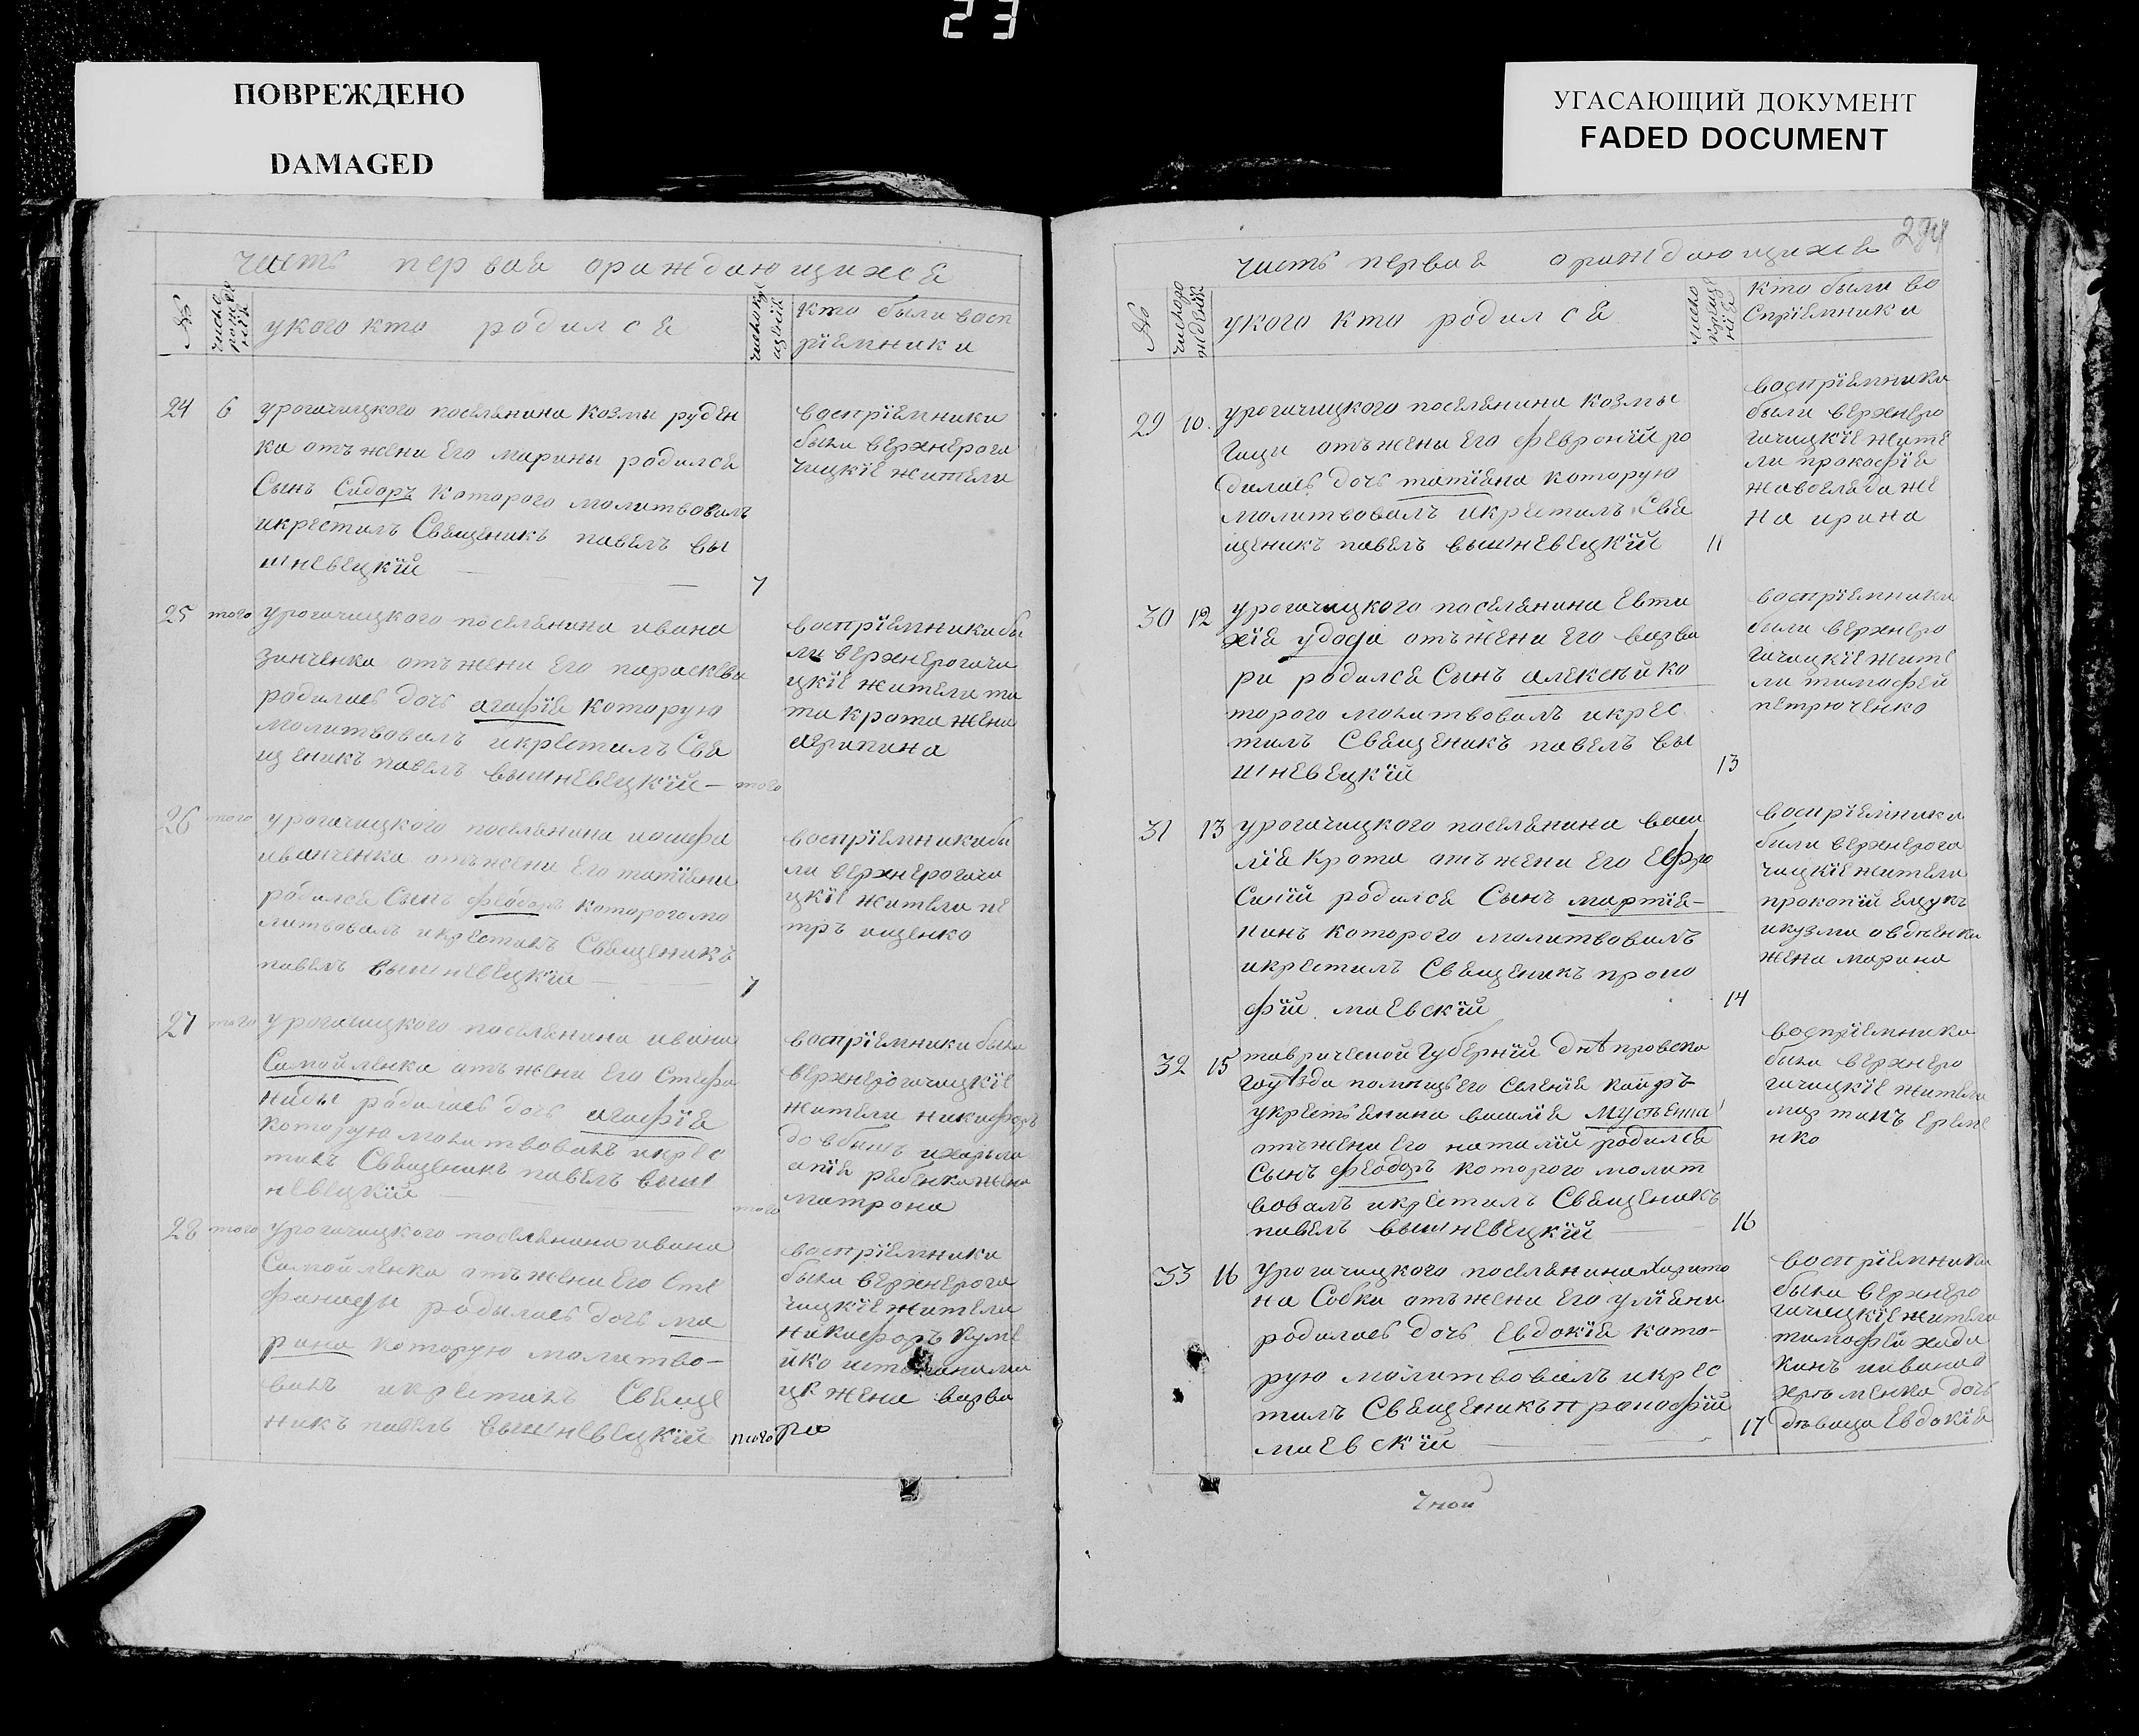 23
ПОВРЕЖДЕНО
DAMAGED
УГАСАЮЩИЙ ДОКУМЕНТ
FADED DOCUMENT
часть первая ораждающихся
№
укого кто родился
кто были восп
рїемники
24 6 урогачицкого поселянина козмы руден
ка отъ жени Его марины родился
Сынъ Сидоръ которого молитвовалъ
икрестилъ Свѧщеникъ павелъ вы
шневецкїй
7
воспрїемники
были верхнерога
чицкїе жители
25 того урогачицкого поселянина ивана
зинченка отъ жени Его параскеви
родилась дочь агафїя которую
молитвовалъ икрестилъ Свя
щеникъ павелъ вышневецкїй – того
воспрїемники бы
ли верхнерогачи
цкїе жители
крота жена
агрипина
26 того урогачицкого поселянина иосифа
иванченка отъ жени Его татїяни
родился Сынъ феодоръ которого мо
литвовалъ икрестилъ Свѧщеникъ
павелъ вышневецкїй
7
воспрїемники бы
ли верхнерогачи
цкїе жители пе
тръ ищенко
27 того урогачицкого поселянина ивана
Самойленка отъ жени Его Стефа
ниды родилась дочь агафїя
которую молитвовалъ икрес
тилъ Свѧщеникъ павелъ выш
невецкїй
того
воспрїемники были
верхнерогачицкїе
жители никифоръ
довбишъ
жена
матрона
28 того урогачицкого поселянина ивана
Самойленка отъ жени Его Сте
родилась дочь ма
рина которую молитво–
валъ икрестилъ Свяще
никъ павелъ вышневецкїй того
воспрїемники
были верхнерога
чицкїе жители
никифоръ куме
йко
цк жена варва
ра
часть первая ораждающихся
294
№
укого кто родился
кто были во
Спрїемники
29 10. урогачицкого поселянина козмы
Гищи отъ жени Его февронїй ро
дилась дочь татїяна которую
молитвовалъ икрестилъ Свя
щеникъ павелъ вышневецкїй
11
воспрїемники
были верхнеро
гачицкїе жите
ли прокофїя
же
на ирина
30 12 урогачицкого поселянина Евти
хїя удода отъ жени Его варва
ри родился Сынъ алексѣй ко
торого молитвовалъ икрес
тилъ Свѧщеникъ павелъ вы
шневецкїй
13
воспрїемники
были верхнеро
гачицкїе жите
ли тимофей
петрюченко
31 13 урогачицкого поселянина васи
лїя крота отъ жени Его Ефро
Синїй родился Сынъ мартїя–
нинъ которого молитвовалъ
икрестилъ Свѧщеникъ проко
фїй маевскїй
14
воспрїемники
были верхнерога
чицкїе жители
прокопїй Ящукъ
икузми авдѣенка
жена марина
32 15 таврической Губернїй днѣпровско
го уѣзда помѣщьего Селенїя каиръ
укрестьянина василїя
отъ жени Его наталїй родился
Сынъ феодоръ которого молит
вовалъ икрестилъ Свѧщеникъ
павелъ вышневецкїй
16
воспрїемники
были верхнеро
гачицкїе жители
мартинъ Ереме
нко
33 16 урогачицкого поселянина харито
на Собки отъ жени Его улїяни
родилась дочь Евдокїя кото–
рую молитвовалъ икрес
тилъ Свѧщеникъ прокофїй
маевскїй
17
воспрїемники
были верхнеро
гачицкїе жители
тимофей
дочь
дѣвица Евдокїя